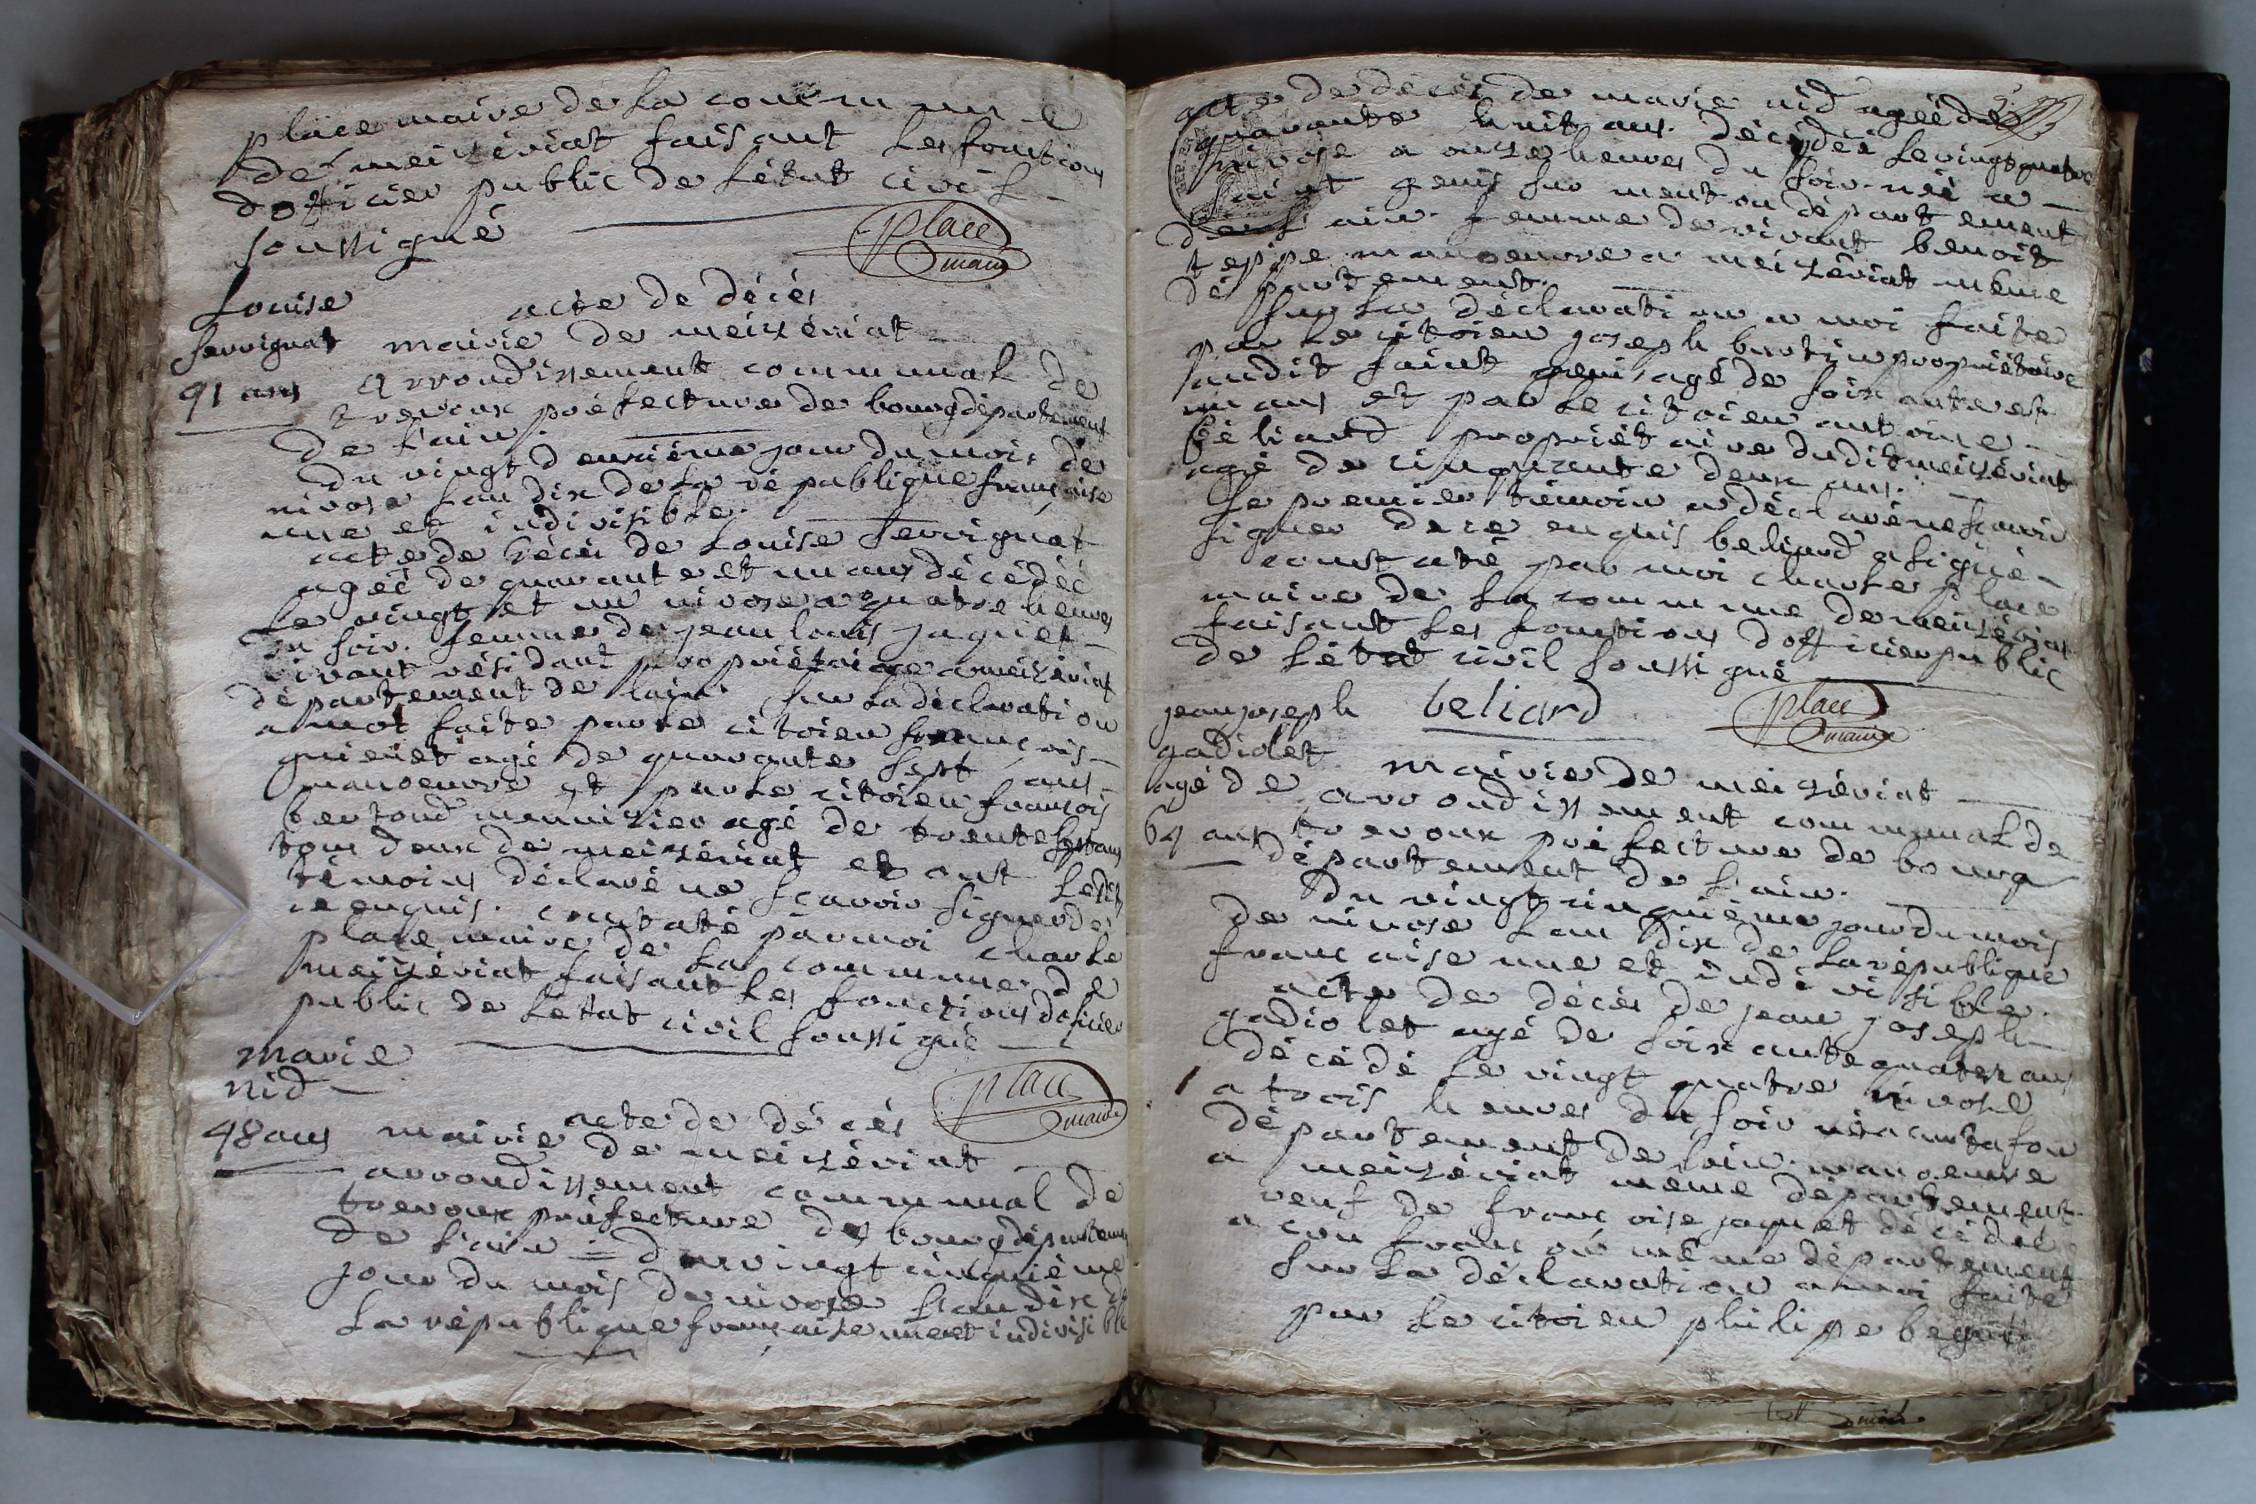 place maire de la commune
de meizériat faisant les fonctions
dofficier public de létat civil
soussigné
place
maire
Louise
servignat
41 ans
acte de décès
mairie de meizériat
arrondissement communal de
trevoux préfecture de bourg département
de l'ain.
du vingt deuxième jour du mois de
nivose l'an dix de la république française
une et indivisible.
acte de décès de Louise servignat
agée de quarante et un ans décédée
le vingt et un nivose a quatre heures
du soir. femme de jean louis jaquet
vivant résidant propriétaire a meizériat
département de l'ain. sur la déclaration
a moi faite par le citoien françois
agé de quarante sept ans
manoeuvre et par le citoien françois
menuizier agé de trente sept ans
tous deux de meizériat et ont lesdits
témoins déclaré ne sçavoir signer de
ce enquis. constaté par moi charle
place maire de la commune de
meizériat faisant les fonctions doficier
public de létat civil soussigné
place
maire
marie
nid
48 ans
acte de décés
mairie de meizériat
arrondissement communal de
trevoux préfecture de bourg département
de l'ain = du vingt cinquième
jour du mois de nivose l'an dix de
la république française une et indivisible
acte de décès de marie nid agée de
quarante huit ans. décédée le vingt quatre
nivose a onze heures du soir née a
saint genis sur menton département
de l'ain. femme de vivant benoit
tespe manoeuvre a meizériat même
département.
sur la déclaration a moi faite
par le citoien joseph bertin propriétaire
audit saint genis agé de soixante et
un ans et par le citoien antoine
béliard propriétaire dudit meizériat
agé de cinquante deux ans.
le premier témoin a déclaré ne sçavoir
signer de ce enquis beliard a signé
constaté par moi charle place
maire de la commune de meizériat
faisant les fonctions dofficier public
de létat civil soussigné
beliard
place
maire
jean joseph
gadiolet
agé de
64 ans
mairie de meizériat
arrondissement communal de
trevoux préfecture de bourg
département de l'ain.
du vingt cinquième jour du mois
de nivose l'an dix de la république
française une et indivisible.
acte de décès de jean joseph
gadiolet agé de soixante quatre ans
décédé le vingt quatre nivose
a trois heures du soir né a
département de l'ain. manoeuvre
a meizériat même département
veuf de françoise jaquet décédée
a même département
sur la déclaration a moi faite
par le citoien philipe